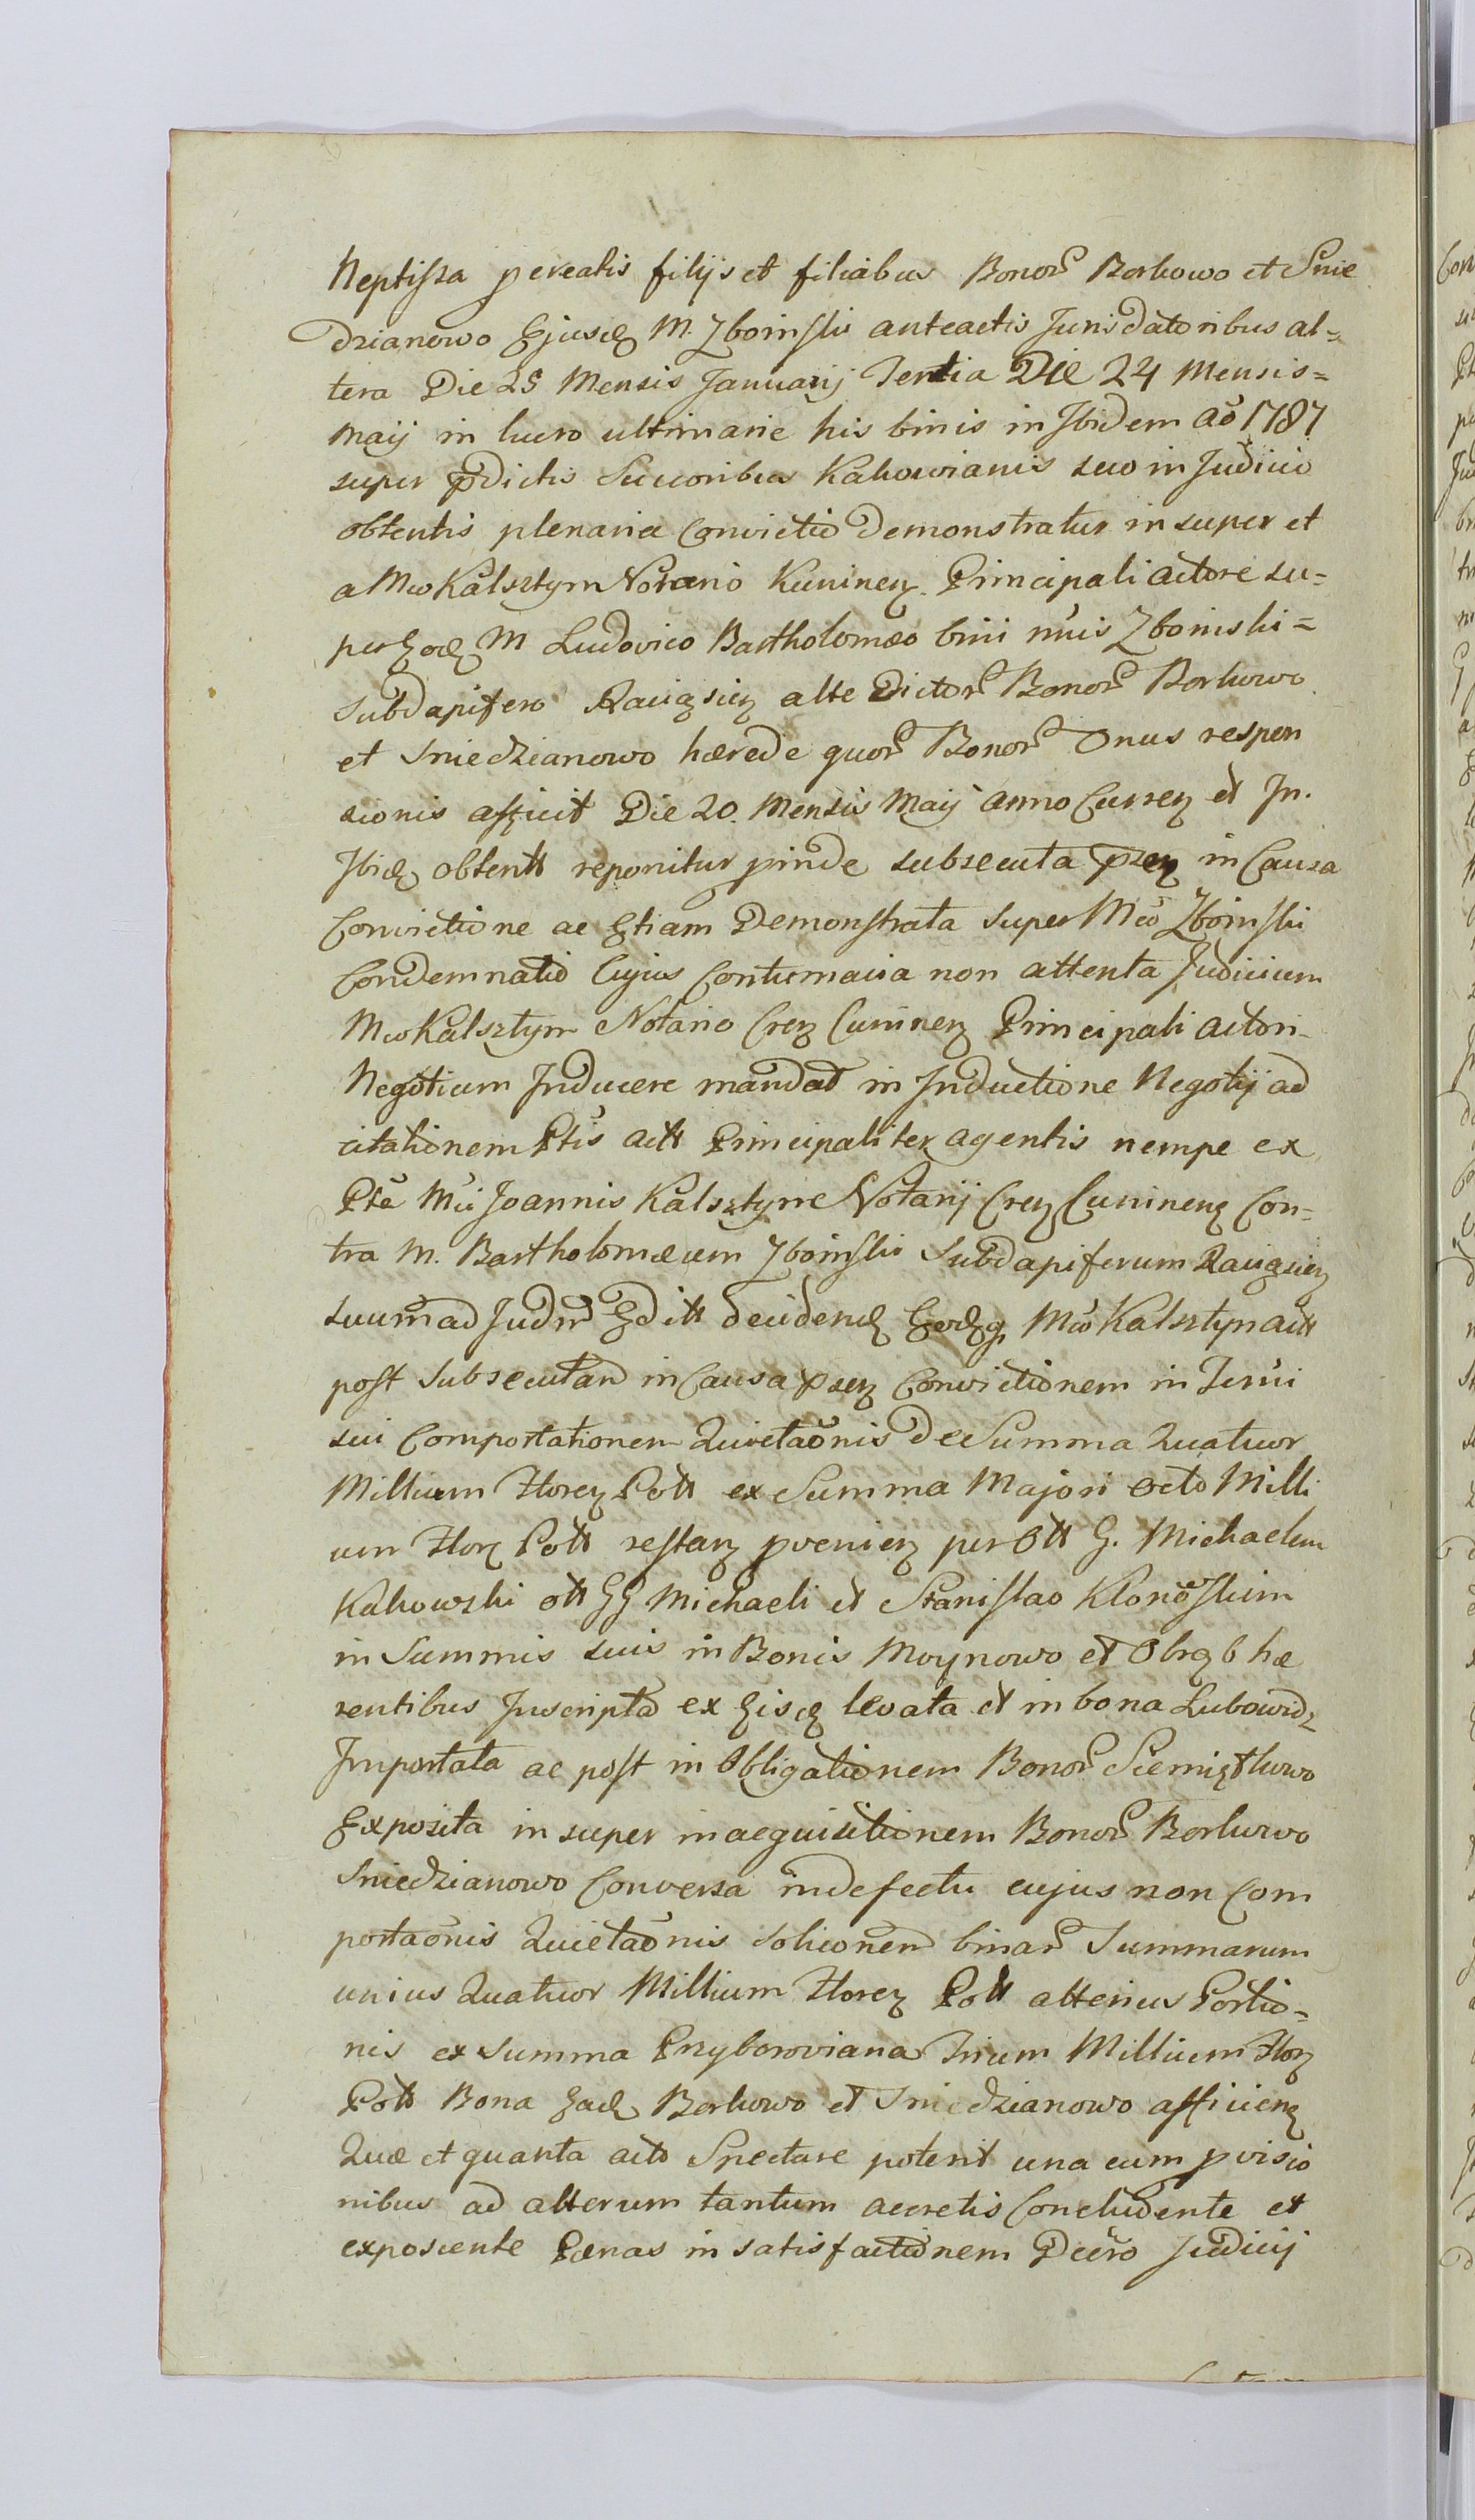 Neptissa procreatis filijs et filiabus Bonor Borkowo et Snie
dzianowo Ejusd M. Zboinski anteactis Jurisdatoribus al=
tera Die 25 Mensis Januarij Tertia Die 24 Mensis=
Maij in lucro ultimarie his binis in Ibidem Aō 1787
super pdictis Succoribus Kakowianis suo in Judicio
obtentis plenaria Convictio Demonstratur insuper et
a Mco Kalsztyn Notario Kuninen. Principali Actore su=
per Eod M Ludovico Bartholomæo bini nńis Zboinski=
Subdapifero Raciązien alte Dictor Bonor Borkowo
et Sniedzianowo hærede quor Bonor Onus respon
sionis afficit Die 20. Mensis Maij Anno Curren et In.
Ibid obtentt reponitur pinde subsecuta psen in Causa
Convictione ac Etiam Demonstrata super Mcō Zboinski
Condemnatio Cujus Contumacia non attenta Judicium
Mco Kalsztyn Notario Cren Cuninen Principali Actori
Negotium Inducere mandat in Inductione Negotij ad
citationem Ptis Actt Principaliter agentis nempe ex
Ptē Mci Joannis Kalsztyn Notarij Cren Cuninen Con=
tra M. Bartholomæum Zboinski Subdapiferum Raciązien
suum ad Judm Editt decidend Eodq Mcō Kalsztyn Actt
post Subsecutam in Causa psen Convictionem in Termi
sui Comportationem Quietaōnis De Summa Quatuor
Millium Floren Pott ex Summa Majori Octo Milli
um Flor Pott restan pvenien per Ott G. Michaelem
Kakowski ott GG Michaeli et Stanislao Klonoskim
in Summis suis in Bonis Moynowo et Obręb hæ
rentibus Inscripta ex Eisd levata et in bona Lubowidz
Importata ac post in Obligationem Bonor Siemiątkowo
Exposita insuper in acquisitionem Bonor Borkowo
Sniedzianowo Conversa indefectu cujus non Com
portaōnis Quietaōnis Soluonem binar Summarum
unius Quatuor Millium Floren Pott alterius Portio=
nis ex Summa Przyborowiana Trium Millium Flor
Pott Bona Ead Borkowo et Sniedzianowo afficien
Quæ et quanta Acto Spectare poterit una cum pvisio
nibus ad alterum tantum accretis Concludente et
exposcente Pænas in satisfactionem Decro Judicij